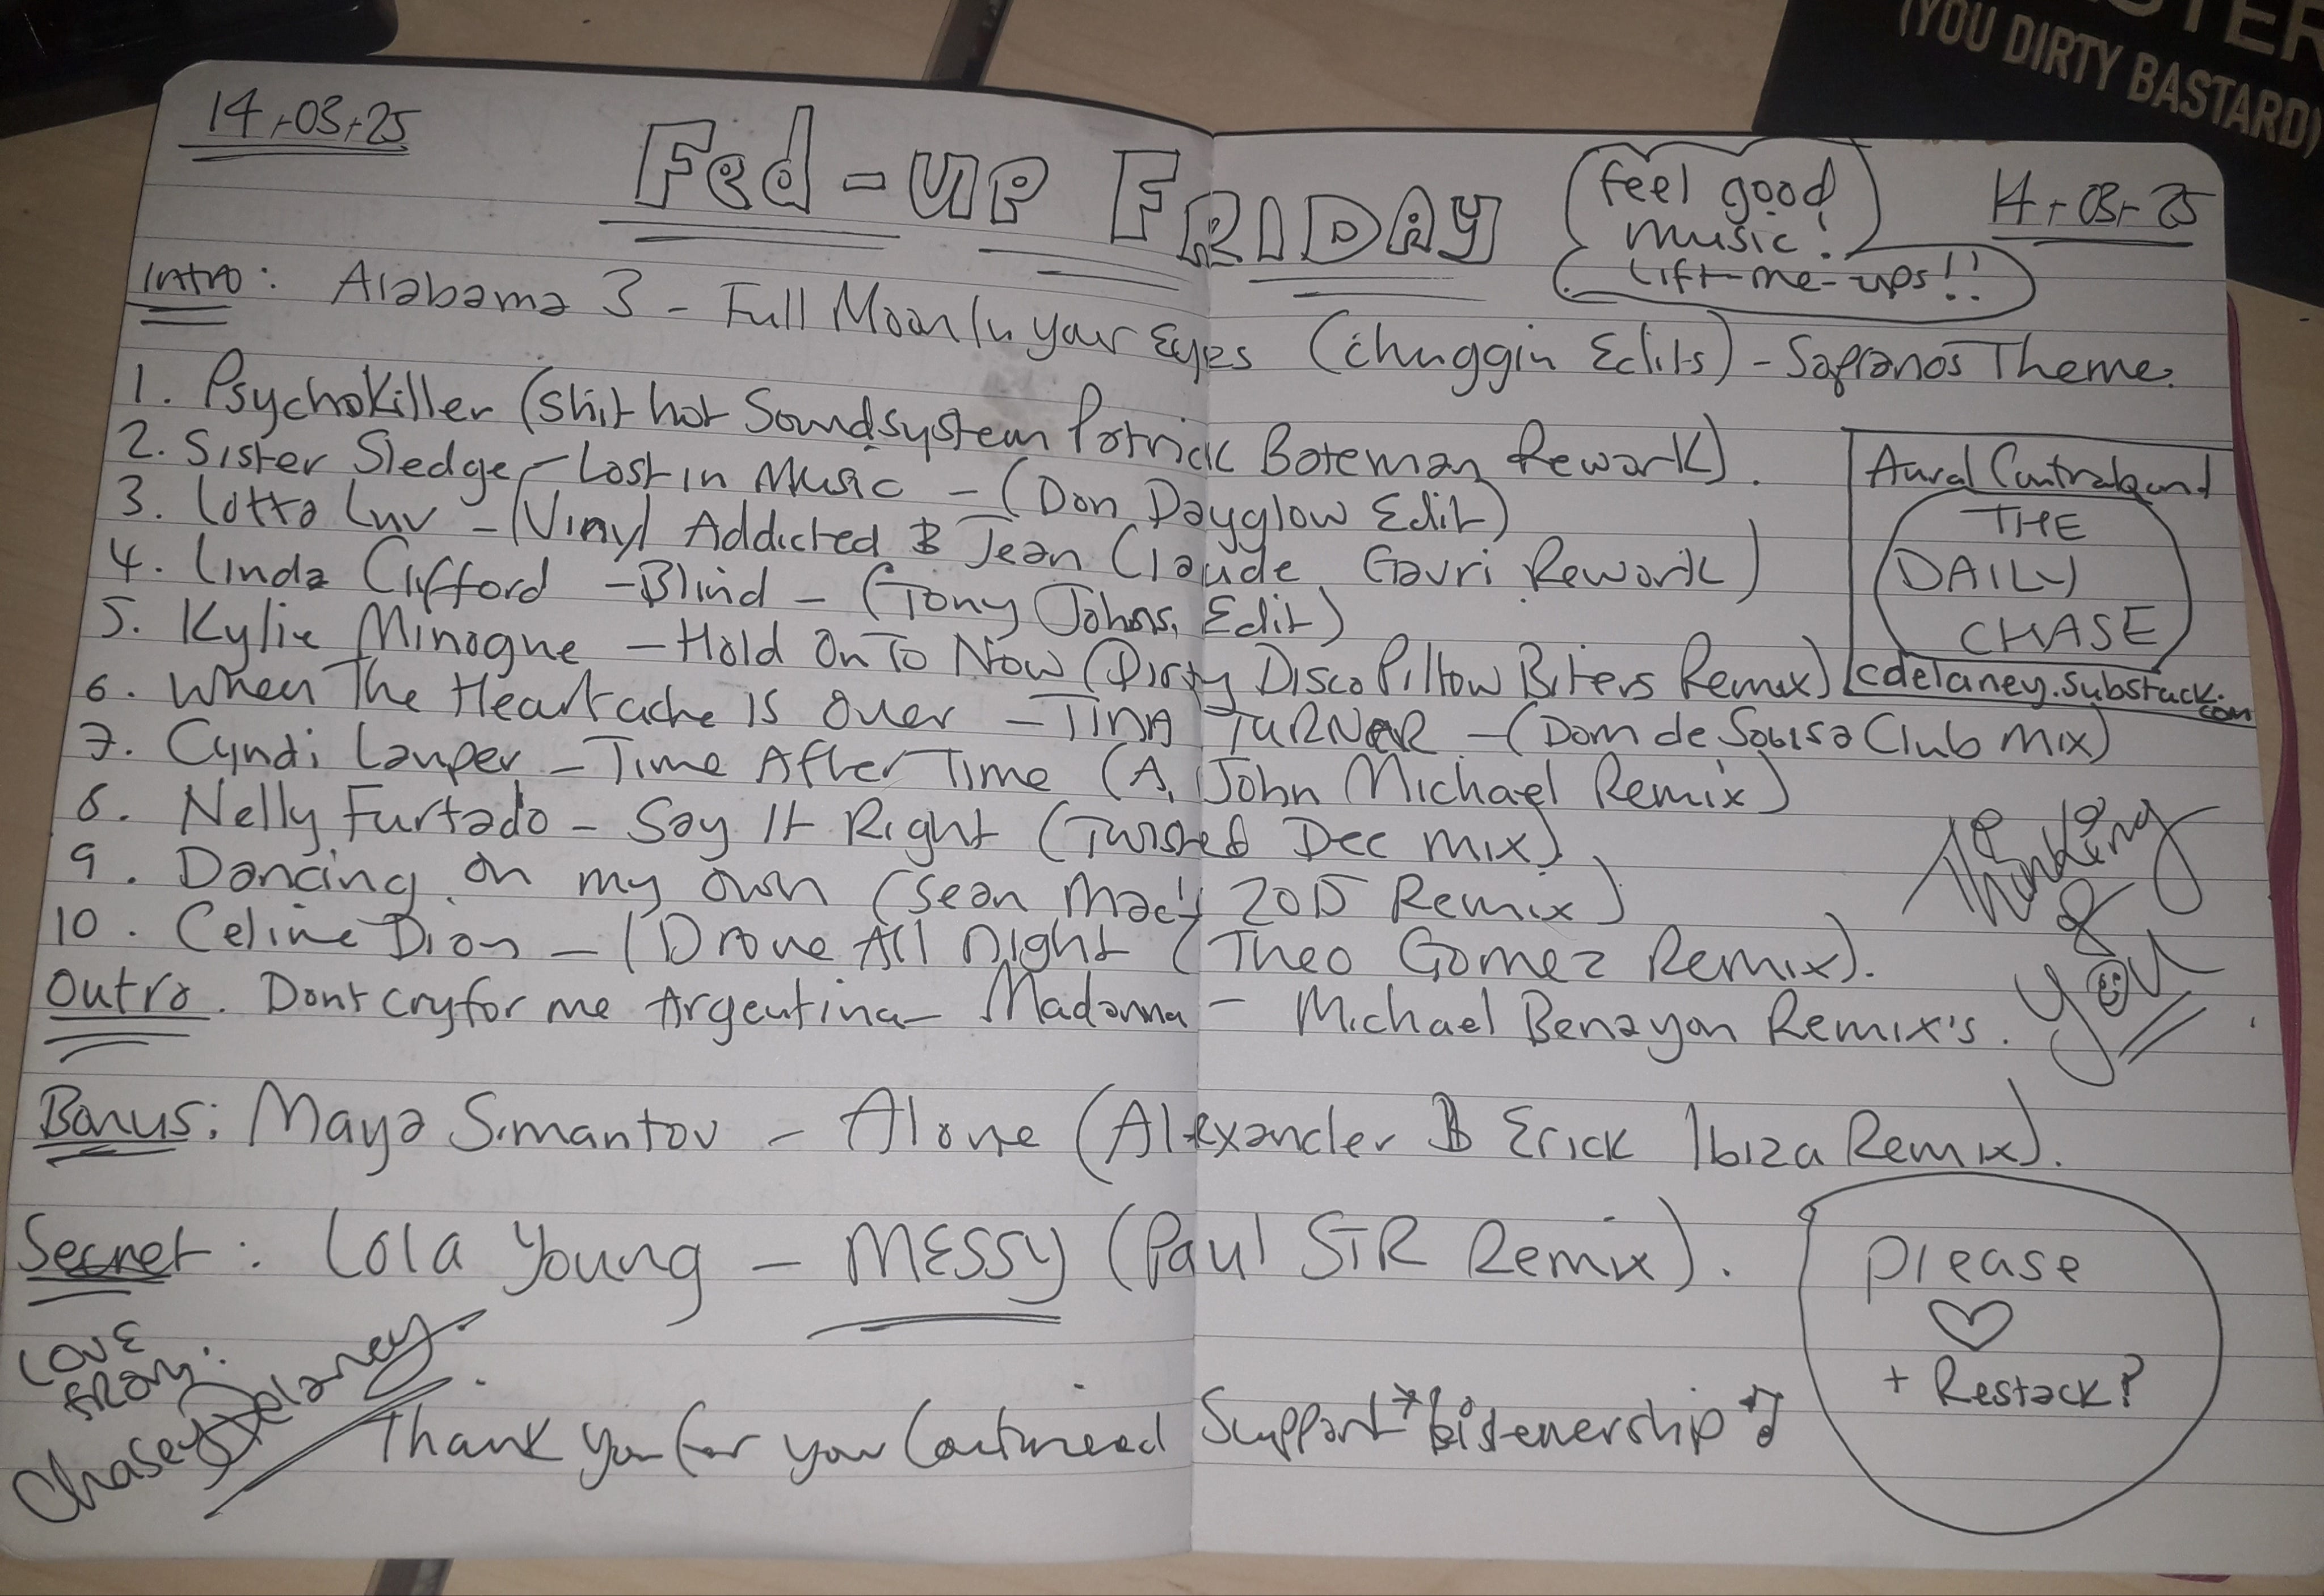 STER
(YOU DIRTY BASTARD)
14-03-25
Fed-UP FRIDAY
feel good
music!
Lift-me-ups!!
14-03-25
Intro: Alabama 3 - Full Moon In Your Eyes (Chuggin Edits) - Sopranos Theme.
1. PsychoKiller (Shit hot Soundsystem Patrick Bateman Rework).
2. Sister Sledge - Lost in Music - (Don Dayglow Edit)
3. Lotta Luv - (Vinyl Addicted & Jean Claude Gavri Rework)
4. Linda Clifford - Blind - (Tony Johns Edit)
5. Kylie Minogue - Hold On To Now (Dirty Disco Pillow Biters Remix)
6. When The Heartache Is Over - TINA TURNER - (Dom de Sousa Club Mix)
7. Cyndi Lauper - Time After Time (A. John Michael Remix)
8. Nelly Furtado - Say It Right (Twisted Dee Mix)
9. Dancing on my own (Sean Mac's 2015 Remix)
10. Celine Dion - I Drove All Night (Theo Gomez Remix).
Outro. Dont cry for me Argentina - Madonna - Michael Benayon Remix's.
Aural Contraband
THE
DAILY
CHASE
cdelaney.substack.com
Thinking
of
you
Bonus: Maya Simantov - Alone (Alexander & Erick Ibiza Remix).
Secret: Lola Young - MESSY (Paul STR Remix).
Love
from:
Chasey Delaney.
Thank you for your Continued Support + listenership
please
♡
+ Restack?